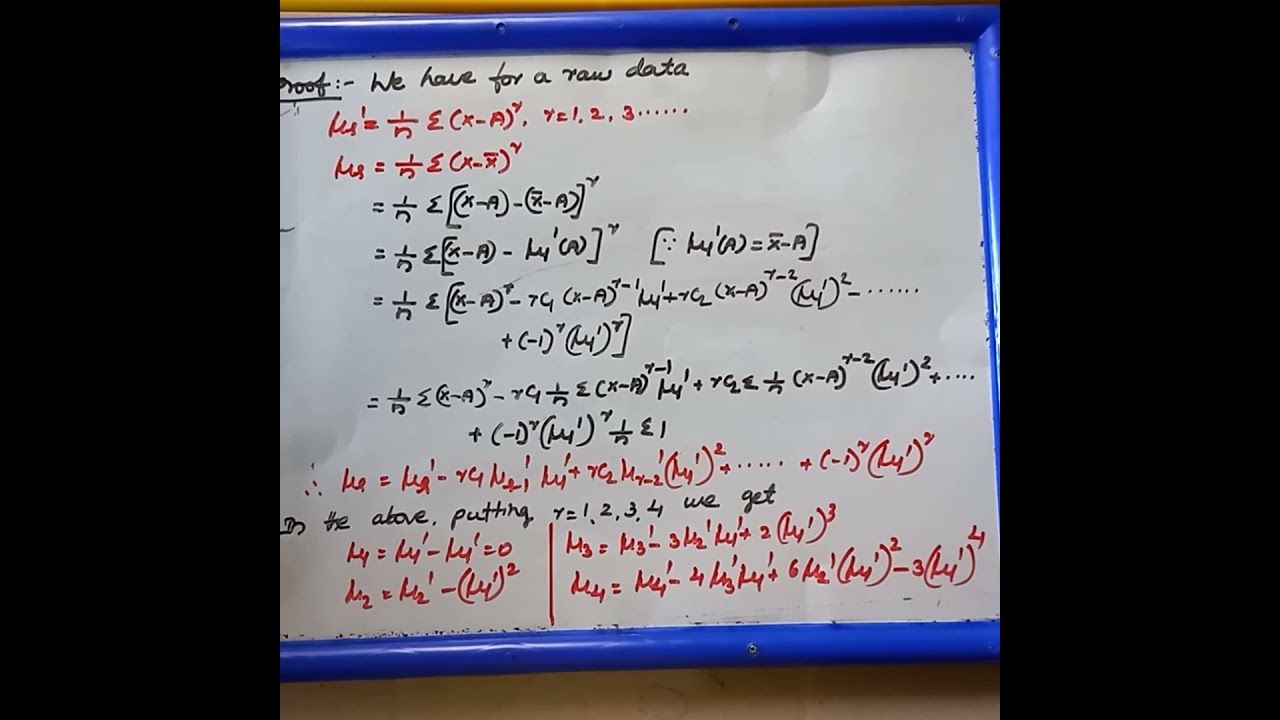 Proof:- We have for a raw data
μᵣ' = 1/n Σ(x-A)ʳ, r=1, 2, 3......
μᵣ = 1/n Σ(x-x̄)ʳ
= 1/n Σ[(x-A)-(x̄-A)]ʳ
= 1/n Σ[(x-A) - μ₁'(A)]ʳ [∵ μ₁'(A) = x̄-A]
= 1/n Σ[(x-A)ʳ - rC₁ (x-A)ʳ⁻¹ μ₁' + rC₂ (x-A)ʳ⁻² (μ₁')² - ......
+ (-1)ʳ (μ₁')ʳ]
= 1/n Σ(x-A)ʳ - rC₁ 1/n Σ(x-A)ʳ⁻¹ μ₁' + rC₂ Σ 1/n (x-A)ʳ⁻² (μ₁')² + ....
+ (-1)ʳ (μ₁')ʳ 1/n Σ1
∴ μᵣ = μᵣ' - rC₁ μᵣ₋₁' μ₁' + rC₂ μᵣ₋₂' (μ₁')² + ..... + (-1)ʳ (μ₁')ʳ
In the above, putting r=1, 2, 3, 4 we get
μ₁ = μ₁' - μ₁' = 0
μ₂ = μ₂' - (μ₁')²
μ₃ = μ₃' - 3μ₂'μ₁' + 2(μ₁')³
μ₄ = μ₄' - 4μ₃'μ₁' + 6μ₂'(μ₁')² - 3(μ₁')⁴